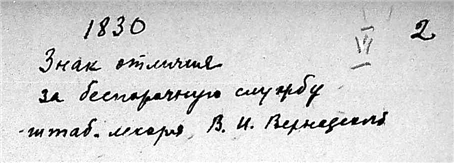 1830
VI
2
Знак отличия
за беспорочную службу
штаб-лекаря В. И. Вернадского